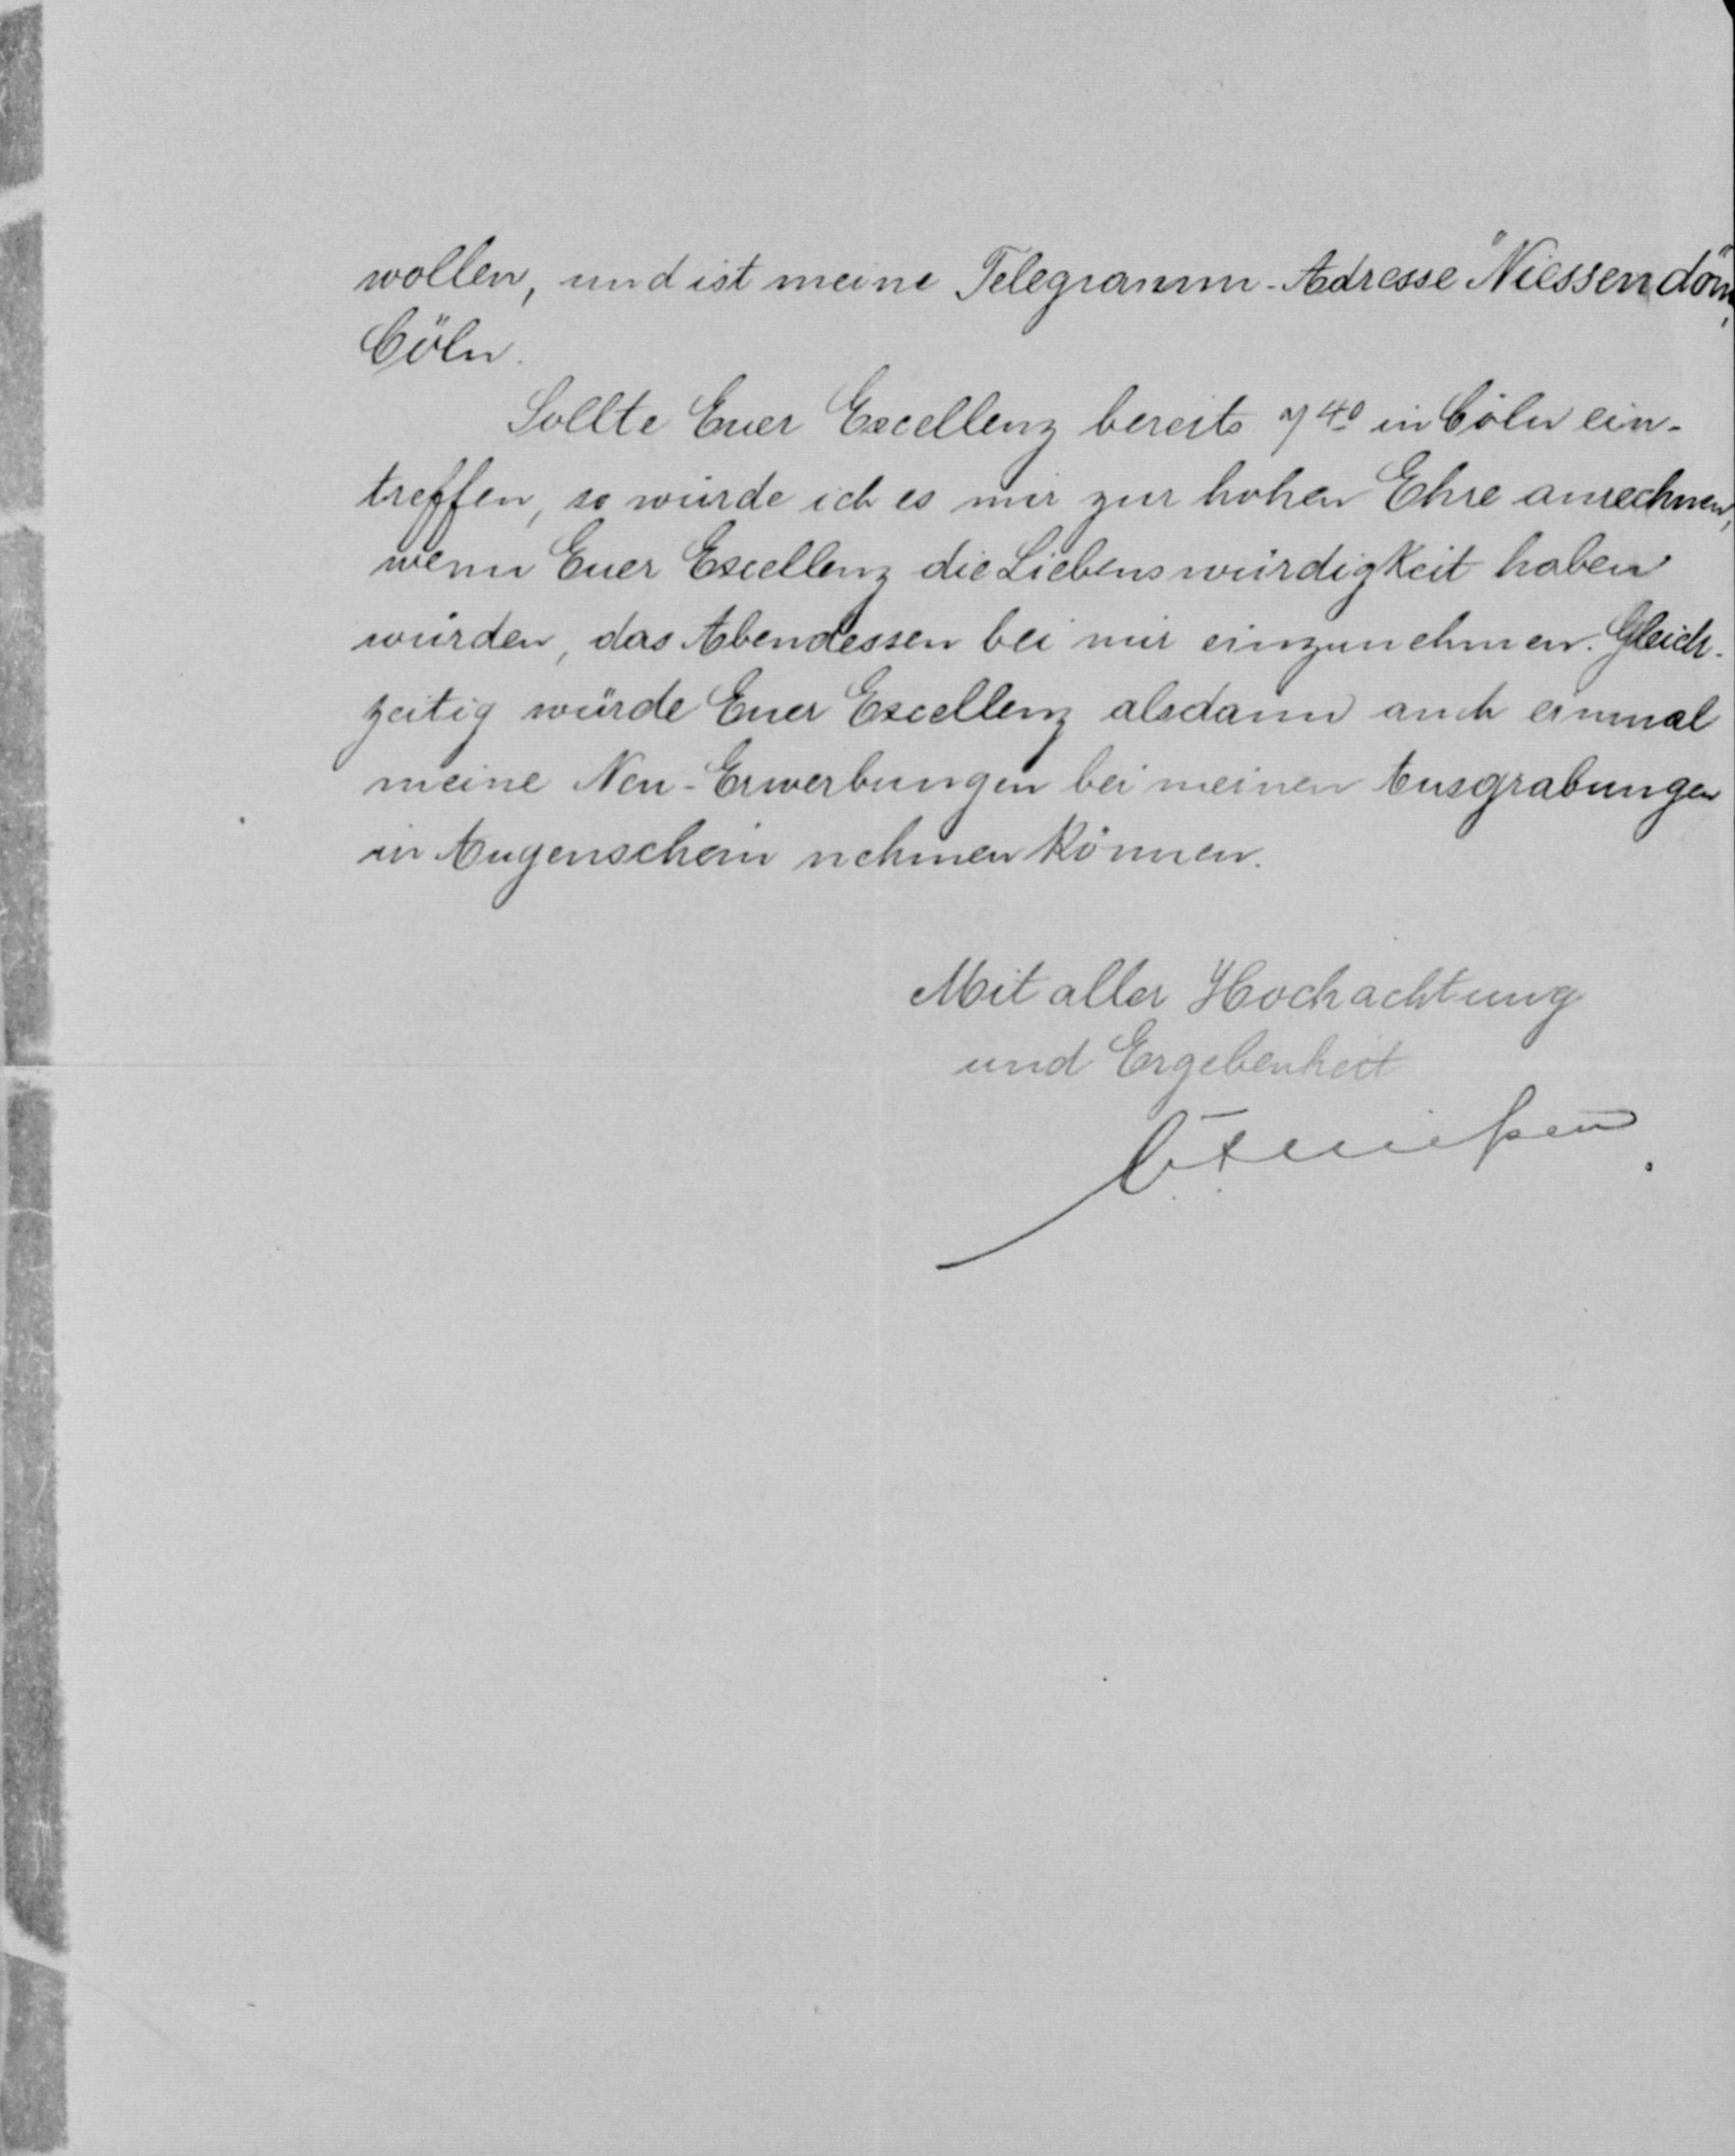 wollen, und ist meine Telegramm-Adresse "Niessendom"
Cöln.
Sollte Euer Excellenz bereits 7 40 in Cöln ein-
treffen, so würde ich es mir zur hohen Ehre anrechnen,
wenn Euer Excellenz die Liebenswürdigkeit haben
würden, das Abendessen bei mir einzunehmen. Gleich-
zeitig würde Euer Excellenz alsdann auch einmal
meine Neu-Erwerbungen bei meinen Ausgrabungen
in Augenschein nehmen können.
Mit aller Hochachtung
und Ergebenheit